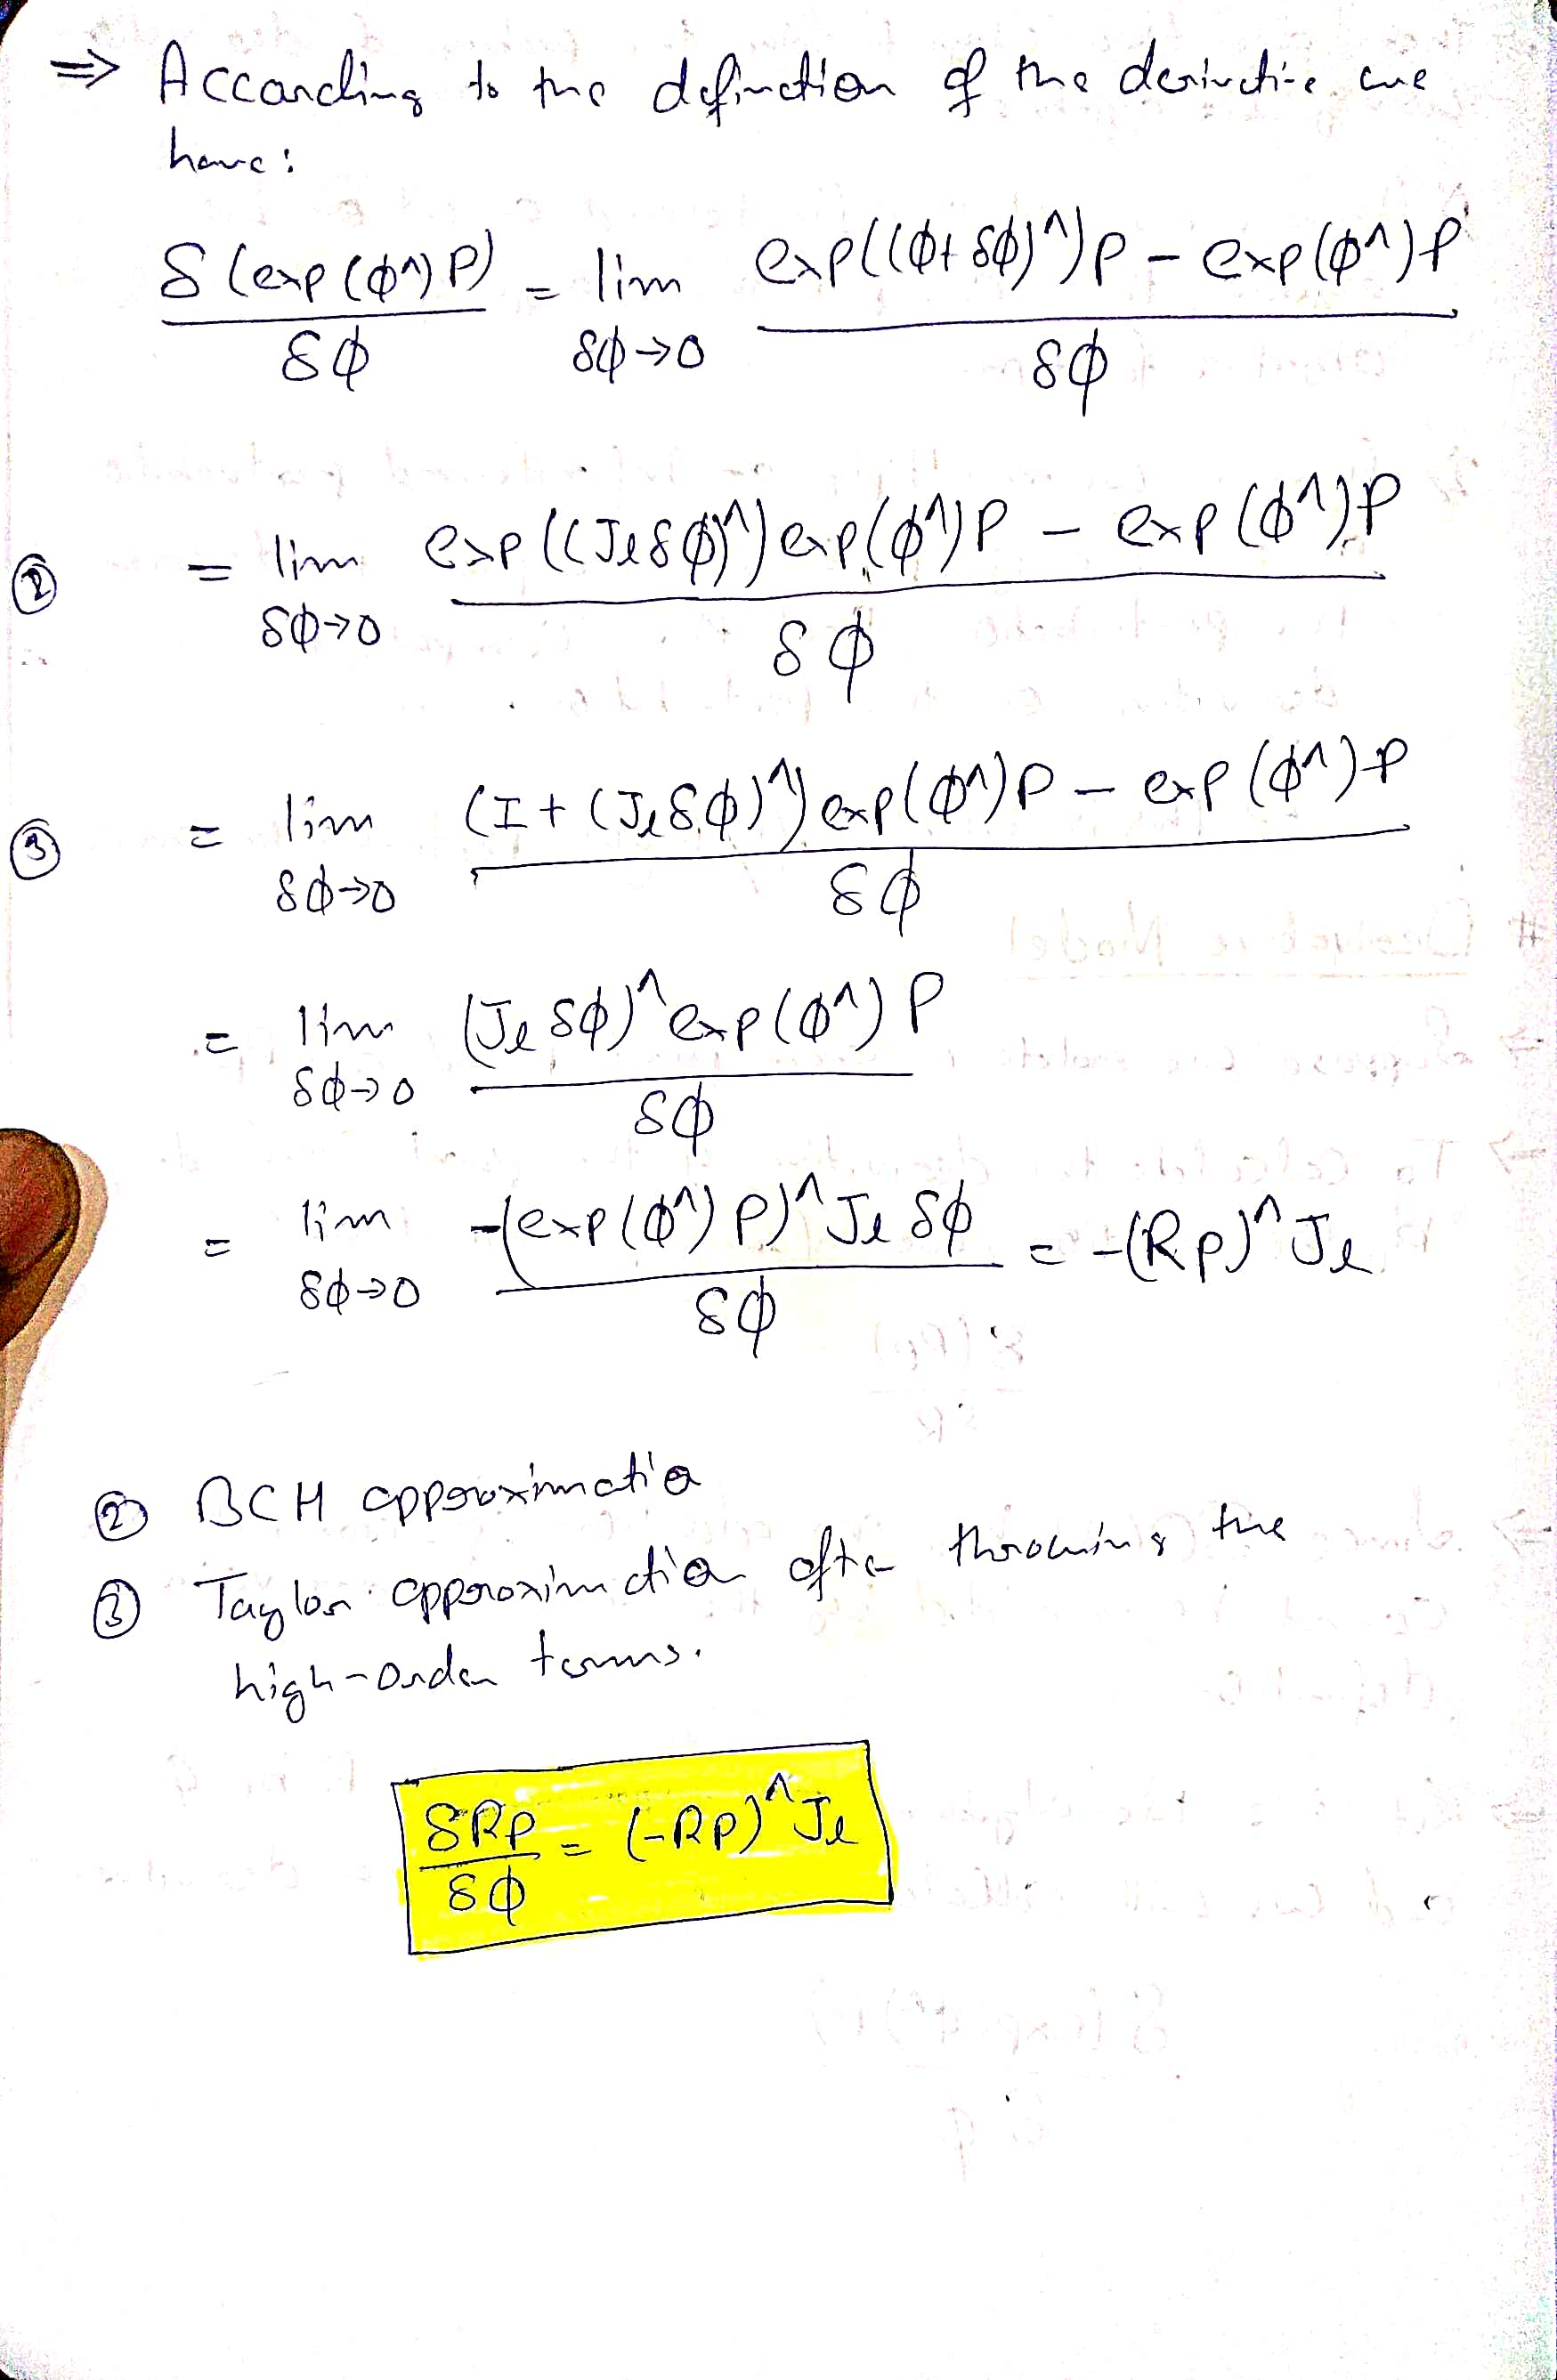 ⇒ According to the definition of the derivative we
have:
δ(exp(φ^)P) / δφ = lim δφ→0 exp((φ+δφ)^)P - exp(φ^)P / δφ
② = lim δφ→0 exp((Jlδφ)^)exp(φ^)P - exp(φ^)P / δφ
③ = lim δφ→0 (I+(Jlδφ)^)exp(φ^)P - exp(φ^)P / δφ
= lim δφ→0 (Jlδφ)^exp(φ^)P / δφ
= lim δφ→0 -(exp(φ^)P)^Jlδφ / δφ = -(RP)^Jl
② BCH approximatio
③ Taylor approximation after throwing the
high-order terms.
δRP / δφ = (-RP)^Jl